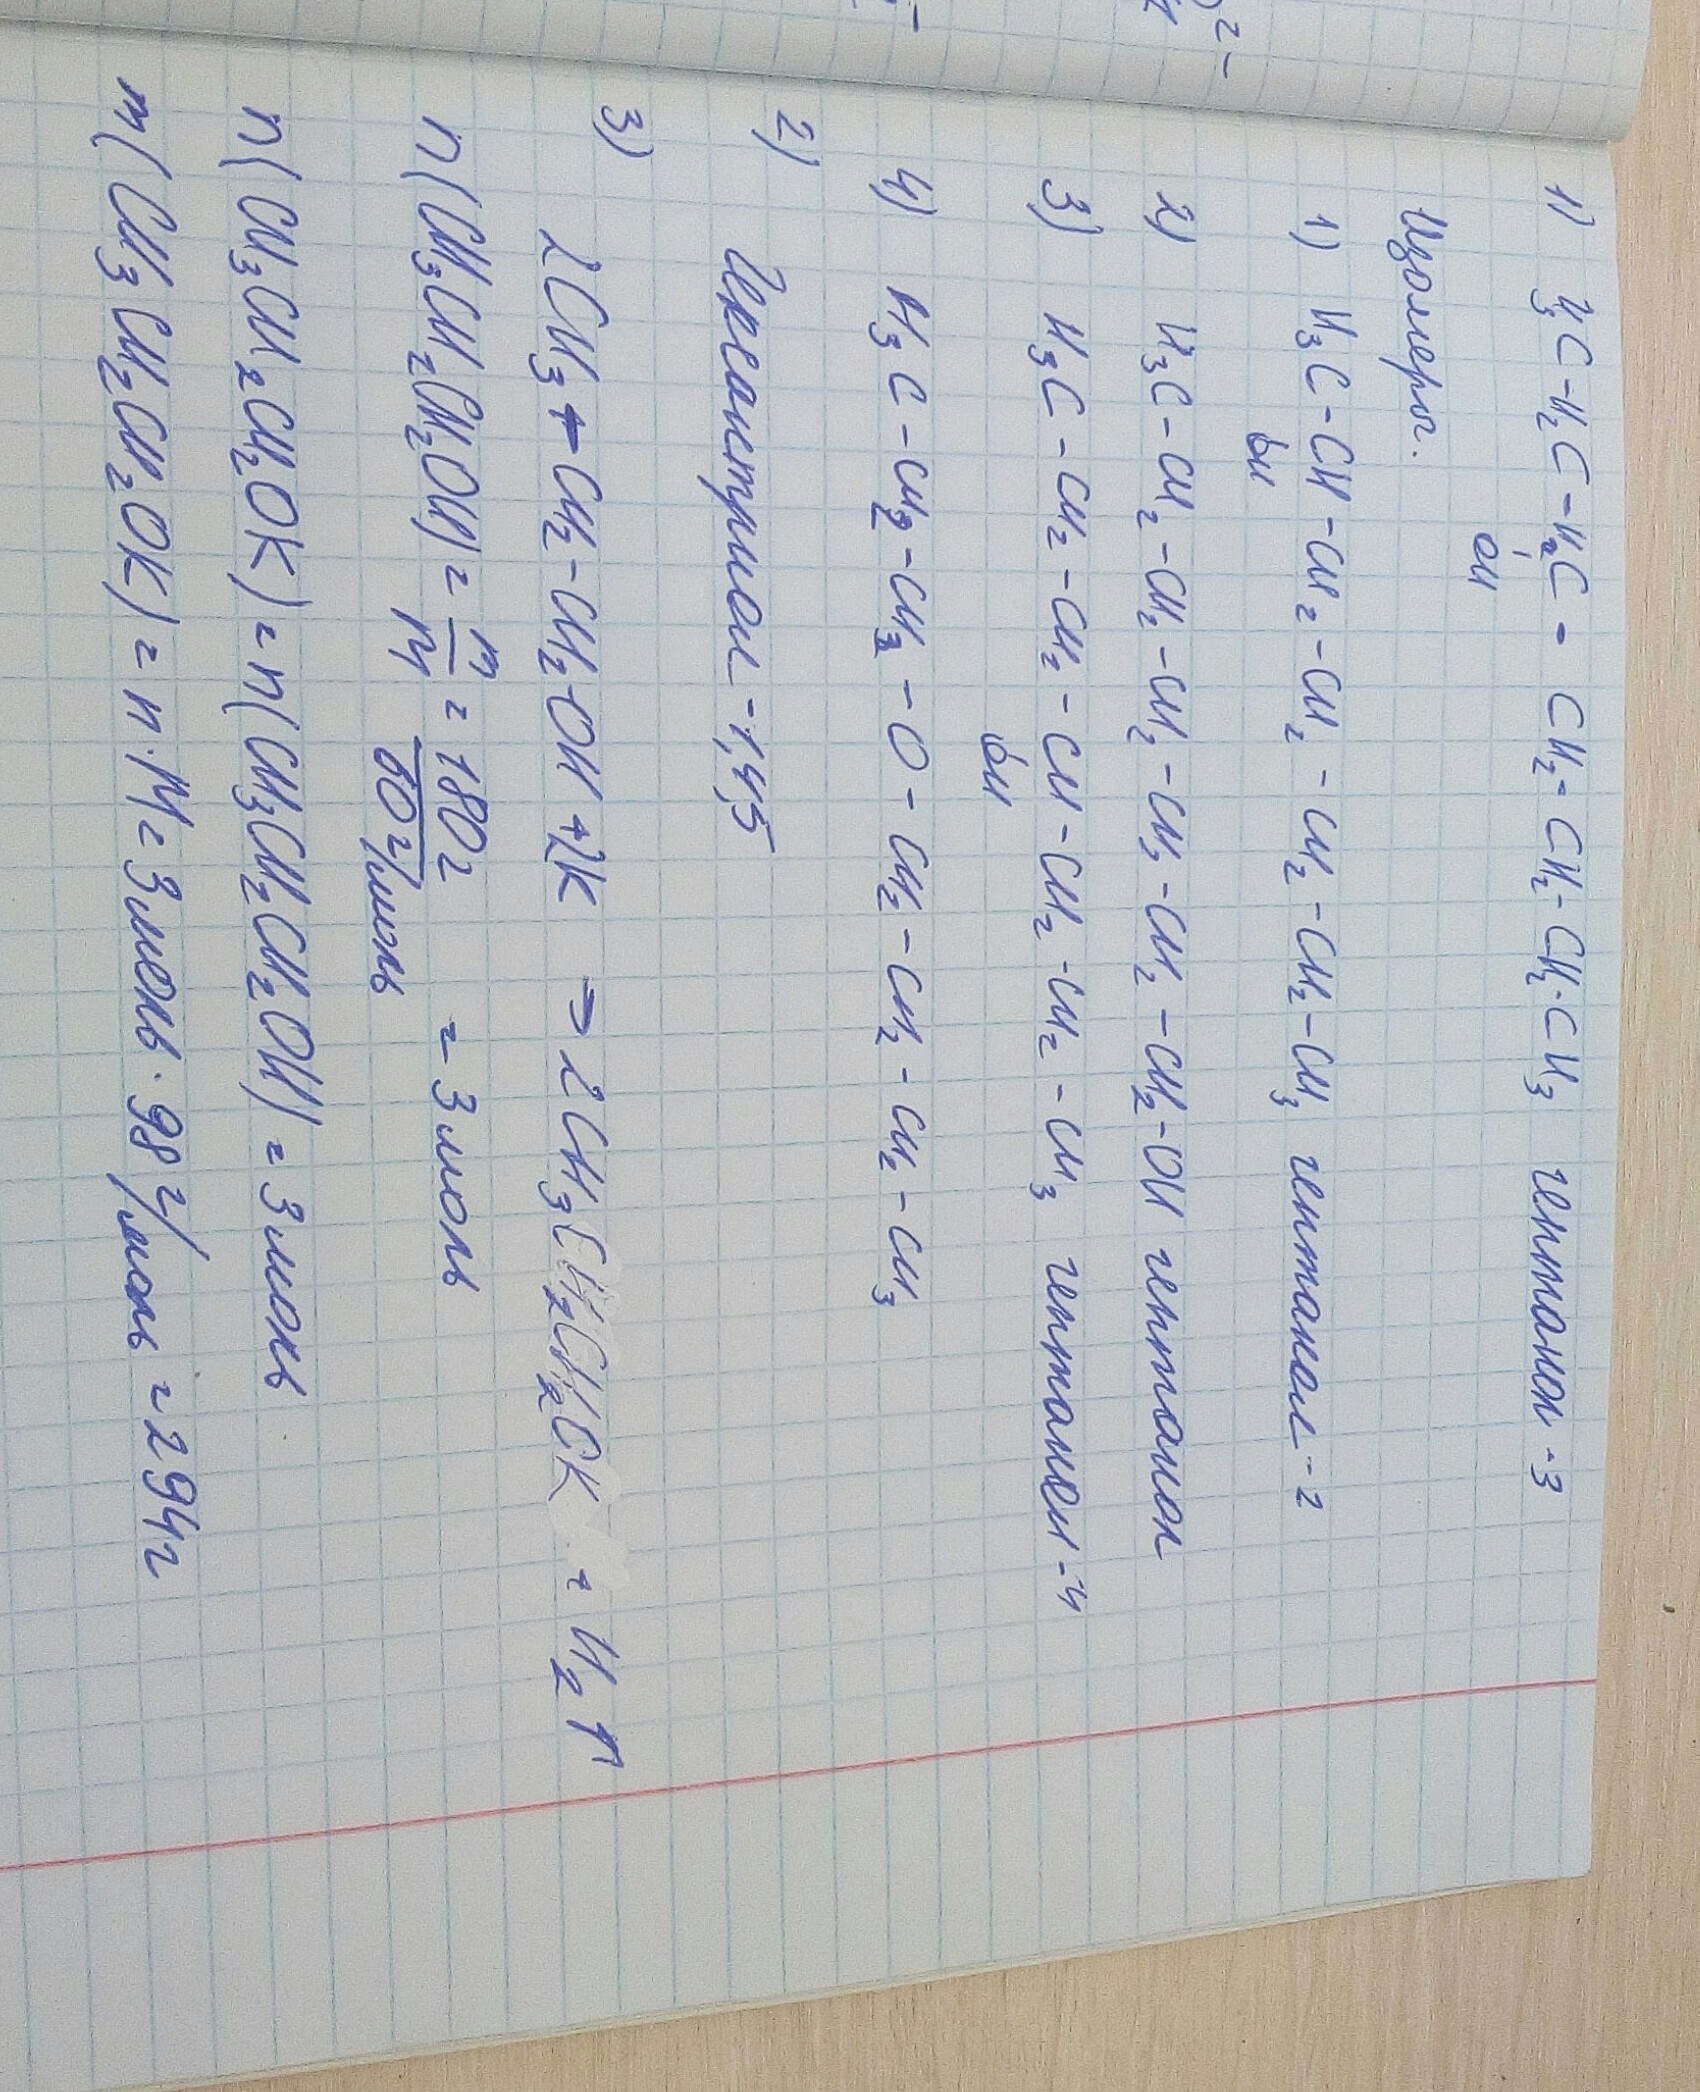 1) H₃C-H₂C-H₂C-CH₂-CH₂-CH₂-CH₃ гептанол-3
OH
Изомеры.
1) H₃C-CH-CH₂-CH₂-CH₂-CH₂-CH₃ гептанол-2
OH
2) H₃C-CH₂-CH₂-CH₂-CH₂-CH₂-CH₂-OH гептанол
3) H₃C-CH₂-CH₂-CH-CH₂-CH₂-CH₃ гептанол-4
OH
4) H₃C-CH₂-CH₂-O-CH₂-CH₂-CH₂-CH₃
2) Гексантриол-1,4,5
3) 2CH₃-CH₂-CH₂-OH+2K → 2CH₃CH₂CH₂OK + H₂↑
n(CH₃CH₂CH₂OH) = m/M = 180г/60г/моль = 3 моль
n(CH₃CH₂CH₂OK) = n(CH₃CH₂CH₂OH) = 3 моль
m(CH₃CH₂CH₂OK) = n·M = 3 моль·98 г/моль = 294г